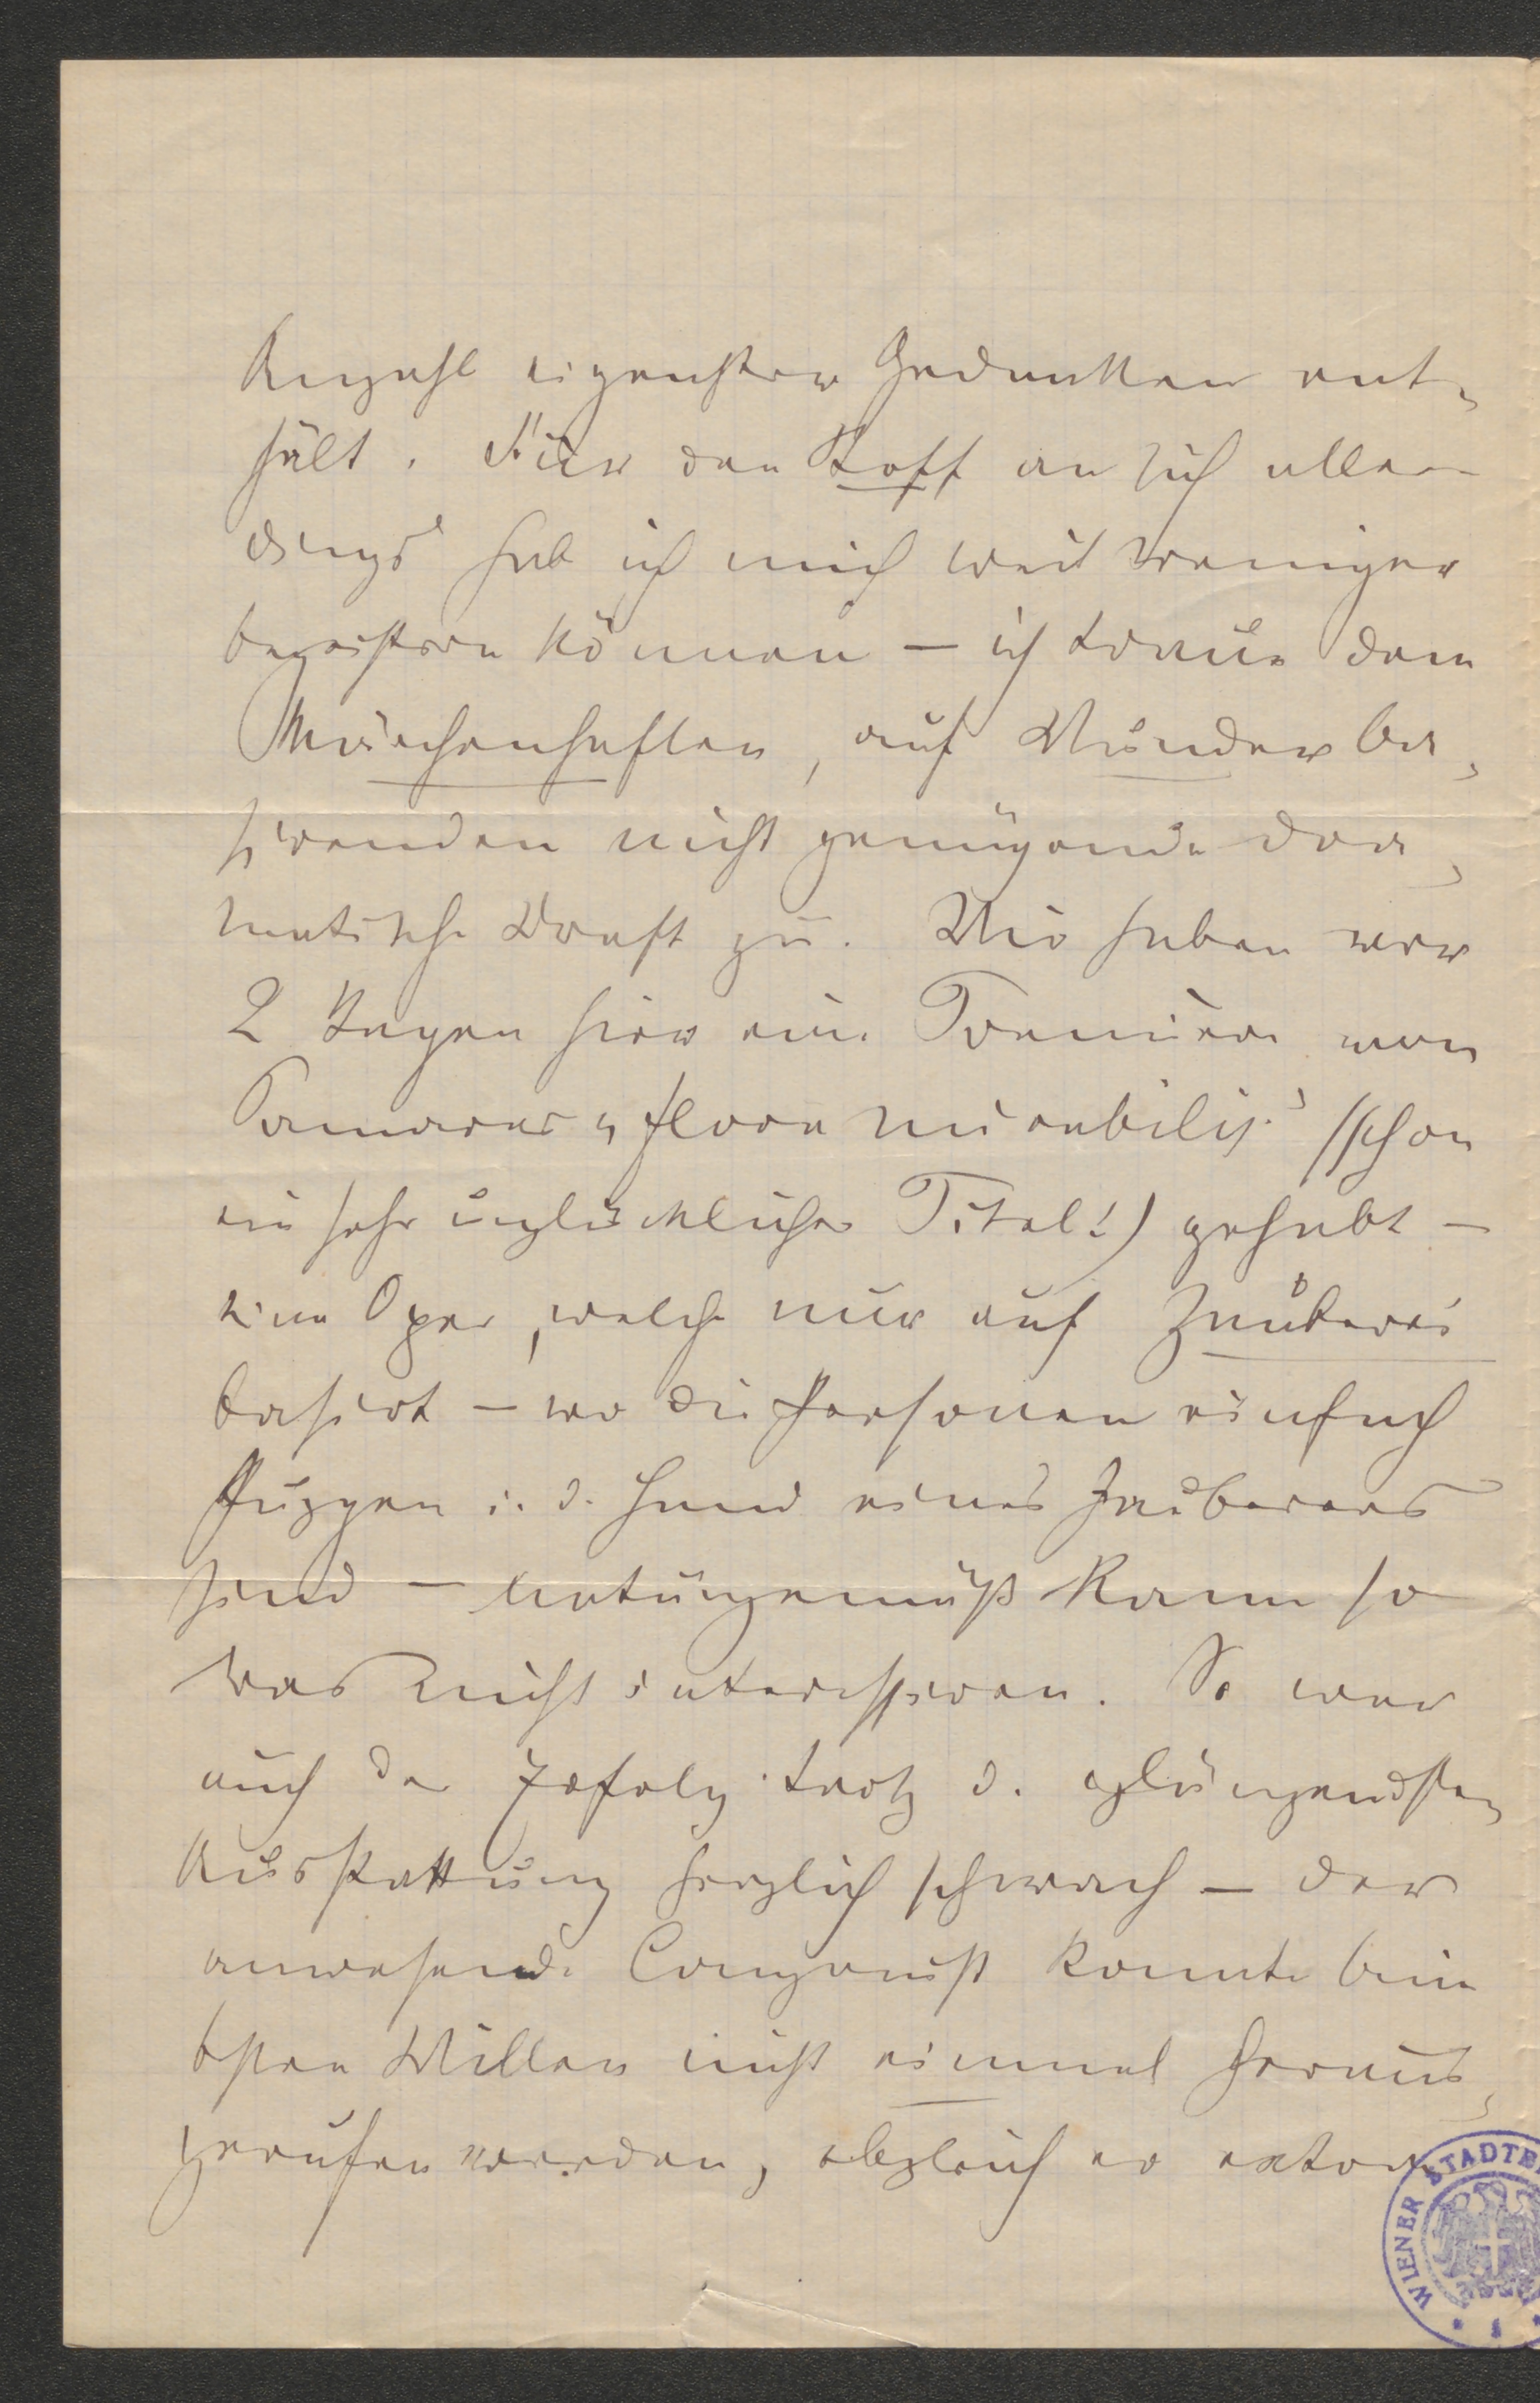 Anzahl eigenster Gedanken ent-
hält. Für den Stoff an sich aller-
dings hab ich mich weit weniger
begeistern können – ich traue dem
Märchenhaften, auf Wunder ba-
sirenden nicht genügende dra-
matische Kraft zu. Wir haben vor
2 Tagen hier eine Premiere von
Samaras „flora mirabilis“ (schon
ein sehr unglücklicher Titel!) gehabt –
eine Oper, welche nur auf Zauberei
basirt – wo die Personen einfach
Puppen i. d. Hand eines Zauberers
sind – naturgemäß kann so
was nicht interessiren. So war
auch der Erfolg trotz d. glänzendsten
Ausstattung herzlich schwach – der
anwesende Componist konnte beim
besten Willen nicht einmal heraus-
gerufen werden, obgleich er extra
WIENER STADTBI